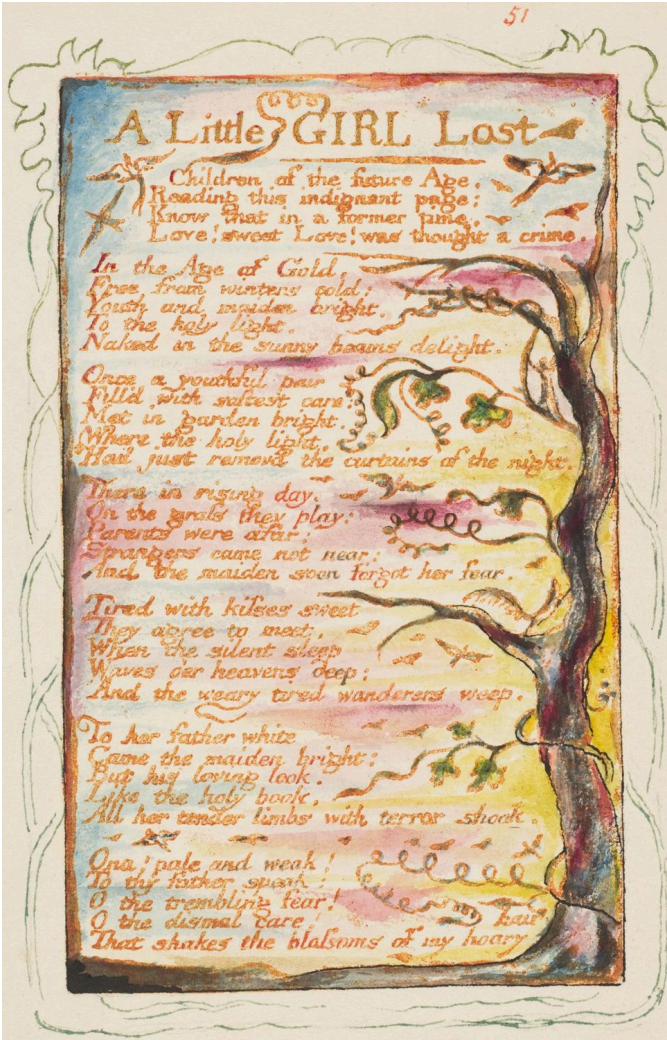 51
A Little GIRL Lost
Children of the future Age,
Reading this indignant page;
Know that in a former time,
Love! sweet Love! was thought a crime.
In the Age of Gold,
Free from winters cold:
Youth and maiden bright,
To the holy light,
Naked in the sunny beams delight.
Once a youthful pair
Fill'd with softest care:
Met in garden bright,
Where the holy light,
Had just removd the curtains of the night.
There in rising day,
On the grass they play:
Parents were afar:
Strangers came not near:
And the maiden soon forgot her fear.
Tired with kisses sweet
They agree to meet,
When the silent sleep
Waves o'er heavens deep:
And the weary tired wanderers weep.
To her father white
Came the maiden bright:
But his loving look,
Like the holy book,
All her tender limbs with terror shook.
Ona! pale and weak!
To thy father speak:
O the trembling fear!
O the dismal care!
That shakes the blossoms of my hoary hair